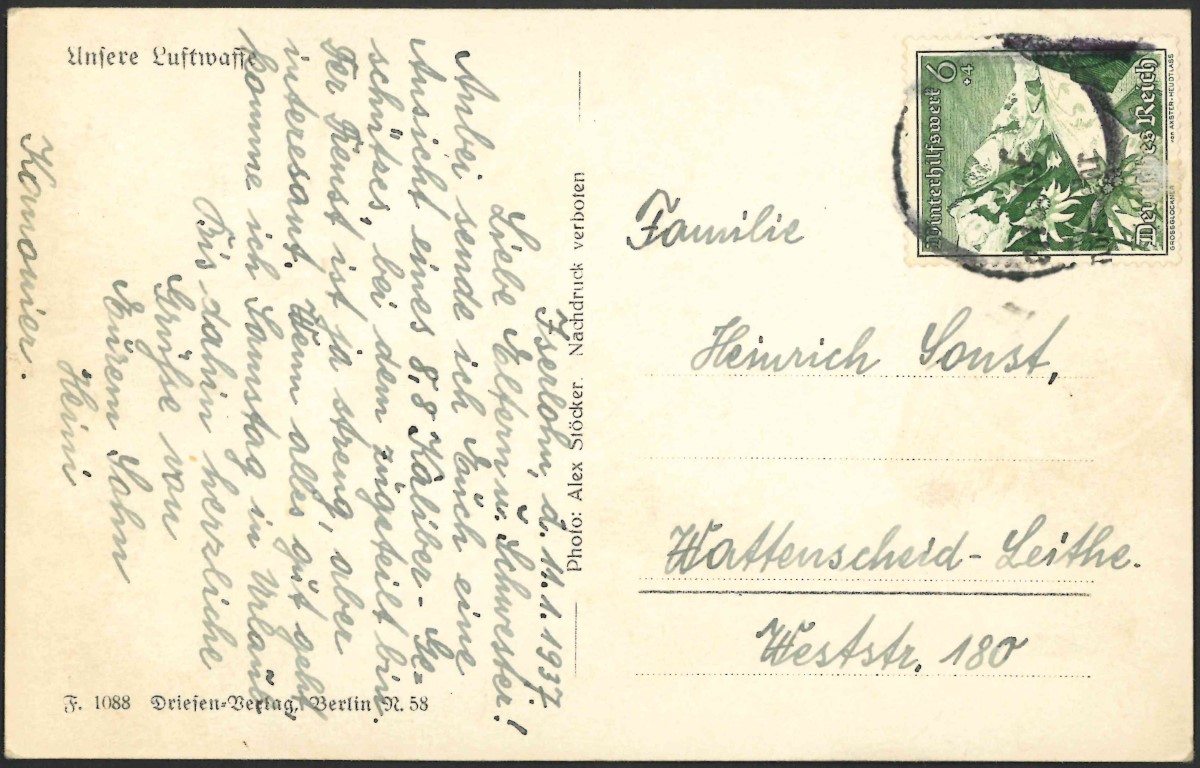 Unsere Luftwaffe
Iserlohn, d. 11.1.1937.
Liebe Eltern u. Schwester!
Anbei sende ich Euch eine
Ansicht eines 8,8 Kaliber-Ge-
schützes, bei dem zugeteilt bin.
Der Dienst ist ja streng, aber
interesant. Wenn alles gut geht,
komme ich Samstag in Urlaub.
Bis dahin herzliche
Grüße von
Eurem Sohn
Heini
Kanonier.
F. 1088 Driesen-Verlag, Berlin N. 58
Photo: Alex Stöcker. Nachdruck verboten
Winterhilfswerk 6
+4
Deutsches Reich
GROSSGLOCKNER
von AXSTER-HEUDTLASS
Familie
Heinrich Sonst,
Wattenscheid-Leithe.
Weststr. 180